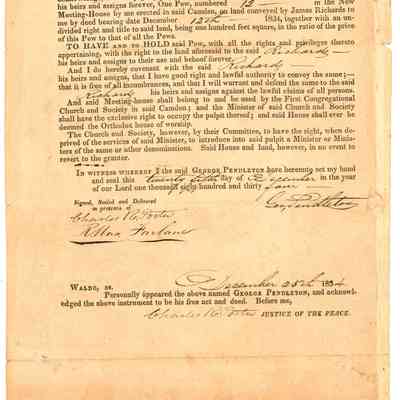 his heirs and assigns forever, One Pew, numbered 12 in the New
Meeting-House by me erected in Camden, on land conveyed by James Richards to
me by deed bearing date December 12th — 1834, together with an un-
divided right and title to said land, being one hundred feet square, in the ratio of the price
of this Pew to that of all the Pews.
TO HAVE AND TO HOLD said Pew, with all the rights and privileges thereto
appertaining, with the right to said land, to the said Richards —
his heirs and assigns to their use and behoof forever.
And I do hereby covenant with the said Richards —
his heirs and assigns, that I have good right and lawful authority to convey the same;—
that it is free of all incumbrances, and that I will warrant and defend the same to the said
Richards his heirs and assigns against the lawful claims of all persons.
And said Meeting-house shall belong to and be used by the First Congregational
Church and Society in said Camden; and the Minister of said Church and Society
shall have the exclusive right to occupy the pulpit thereof; and said House shall ever be
deemed the Orthodox house of worship.
The Church and Society, however, by their Committee, to have the right, when de-
prived of the services of said Minister, to introduce into said pulpit a Minister or Minis-
ters of the same or other denominations. Said House and land, however, in no event to
revert to the granter.
IN WITNESS WHEREOF I the said GEORGE PENDLETON have hereunto set my hand
and seal this twenty fifth day of December in the year
of our Lord one thousand eight hundred and thirty four —
Signed, Sealed and Delivered
in presence of
Geo Pendleton
Charles R. Porter
WALDO, ss. December 25th 1834.
Personally appeared the above named GEORGE PENDLETON, and acknowl-
edged the above instrument to be his free act and deed. Before me,
Charles R. Porter JUSTICE OF THE PEACE.